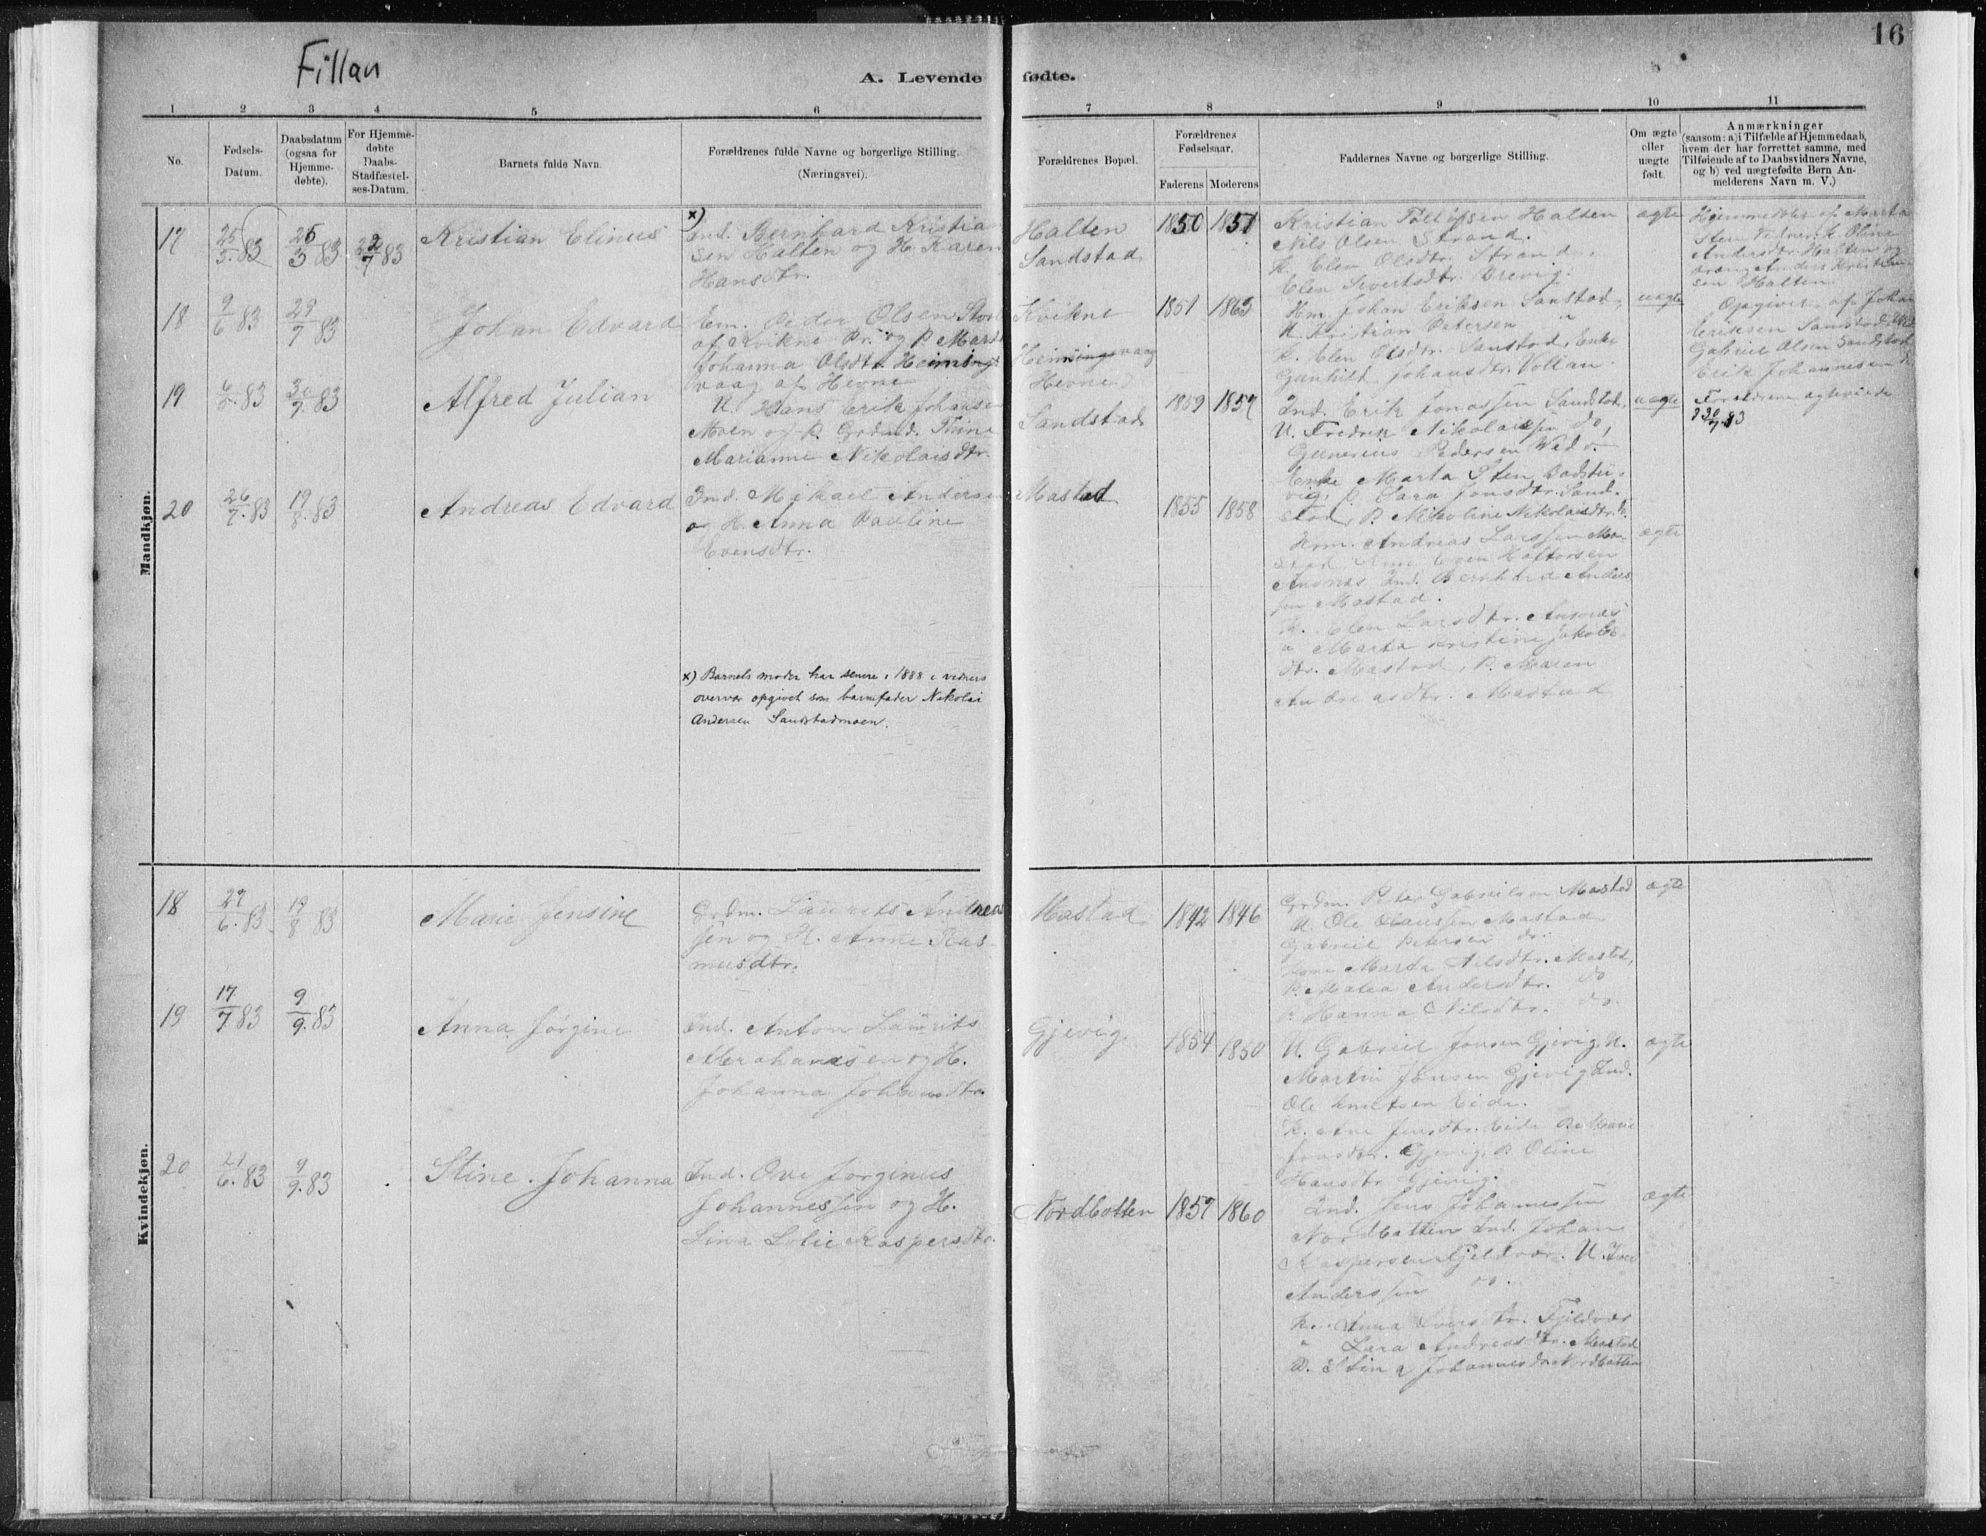 Fillan
16
A. Levende fødte.
1 2 3 4 5 6 7 8 9 10 11
No.
Fødsels-
Datum.
Daabsdatum
(ogsaa for
Hjemme-
døbte).
For Hjemme-
døbte
Daabs-
Stadfæstel-
ses-Datum.
Barnets fulde Navn.
Forældrenes fulde Navne og borgerlige Stilling.
(Næringsvei).
Forældrenes Bopæl.
Forældrenes
Fødselsaar.
Faderens Moderens
Faddernes Navne og borgerlige Stilling.
Om ægte
eller
uægte
født.
Anmærkninger
(saasom: a) i Tilfælde af Hjemmedaab,
hvem der har forrettet samme, med
Tilføiende af to Daabsvidners Navne,
og b) ved uægtefødte Børn An-
melderens Navn m. V.)
Mandkjøn.
17
25/3 83
26/3 83
22/7 83
Kristian Elinus
x)
Ind. Bernhard Kristian
sen Halten og H. Karen
Hansdtr.
Halten
Sandstad
1850 1851
Kristian Halten
Nils Olsen Strand.
K. Elen Olsdtr. Strand
Elen Sivertsdtr. Brevig.
ægte
Hjemmedøbt af Marta
Sten Oline
Andersdtr. Halten og
Anders Kristian
sen Halten
18
9/6 83
29/7 83
Johan Edvard
Em. Peder Olsen
af Kvikne Pr. og P. Marta
Johanna Olsdtr. Heimings
vaag af Hevne
Kvikne
Heimingsvaag
Hevne)
1851 1863
Hm. Johan Eriksen Sanstad,
U. Kristian Petersen "
K. Elen Olsdtr. Sanstad, Enke
Gunhild Johansdtr. Vollan
uægte
Opgivet af Johan
Eriksen Sandstad
Gabriel Olsen Sandstad
Erik Johannesen
19
83
30/7 83
Alfred Julian
U. Hans Erik Johansen
Moen og P.
Marianne Nikolaisdtr.
Sandstad
1859 1857
Ind. Erik Jonassen Sandstad,
U. Fredrik Nikolaisen do,
Gunerius Pedersen
Enke Marta Sten
vig, P. Sara Jonsdtr. Sand-
stad, P. Nikoline Nikolaisdtr.
uægte
Forældrene ægteviede
30/7 83
20
26/7 83
19/8 83
Andreas Edvard
Ind. Mikael Andersen
og H. Anna Pauline
Evensdtr.
Mastad
1855 1858
Hm. Andreas Larssen Ma-
stad,
Ansnæs Ind. Bernhard Anders
sen Mastad.
K. Elen Larsdtr. Ansnæs
" Marta Kristine Jakobs-
dtr. Mastad, P. Maren
Andreasdtr. Mastad
ægte
x) Barnets moder har senere i 1888 i vidners
overvær opgivet som barnefader Nikolai
Andersen Sandstadmoen.
Kvindekjøn.
18
29/6 83
19/8 83
Marie Jensine
Grdm. Laurits Andreas
sen og H. Anne Ras-
musdtr.
Mastad
1842 1846
Grdm. Peter Gabrielsen Mastad
U. Ole Olaussen Mastad
Gabriel Petersen do.
Kone Marta Nilsdtr. Mastad,
P. Matea Andersdtr. do
P. Hanna Nilsdtr. do.
ægte
19
17/7 83
9/9 83
Anna Jørgine
Ind. Anton Laurits
Abrahamsen og H.
Johanna Johansdtr.
Gjevig
1854 1850
U. Gabriel Jonsen Gjevig, U.
Martin Jonsen Gjevig Ind.
Ole Knutsen Eide.
K. Ane Jensdtr. Eide P. Marie
Jonsdtr. Gjevig, P. Oline
Hansdtr Gjevig.
ægte
20
21/6 83
9/9 83
Stine Johanna
Ind. Ove Jørginus
Johannessen og H.
Lina Lovie Kaspersdtr.
Nordbotten
1857 1860
Ind. Jens Johannessen
Nordbotten Ind. Johan
Kaspersen Fjeldvær. U.
Anderssen do.
K. Anna Fjeldvær
" Lara Andreasdtr. Mastad
P. Stina Johannesdtr Nordbotten
ægte